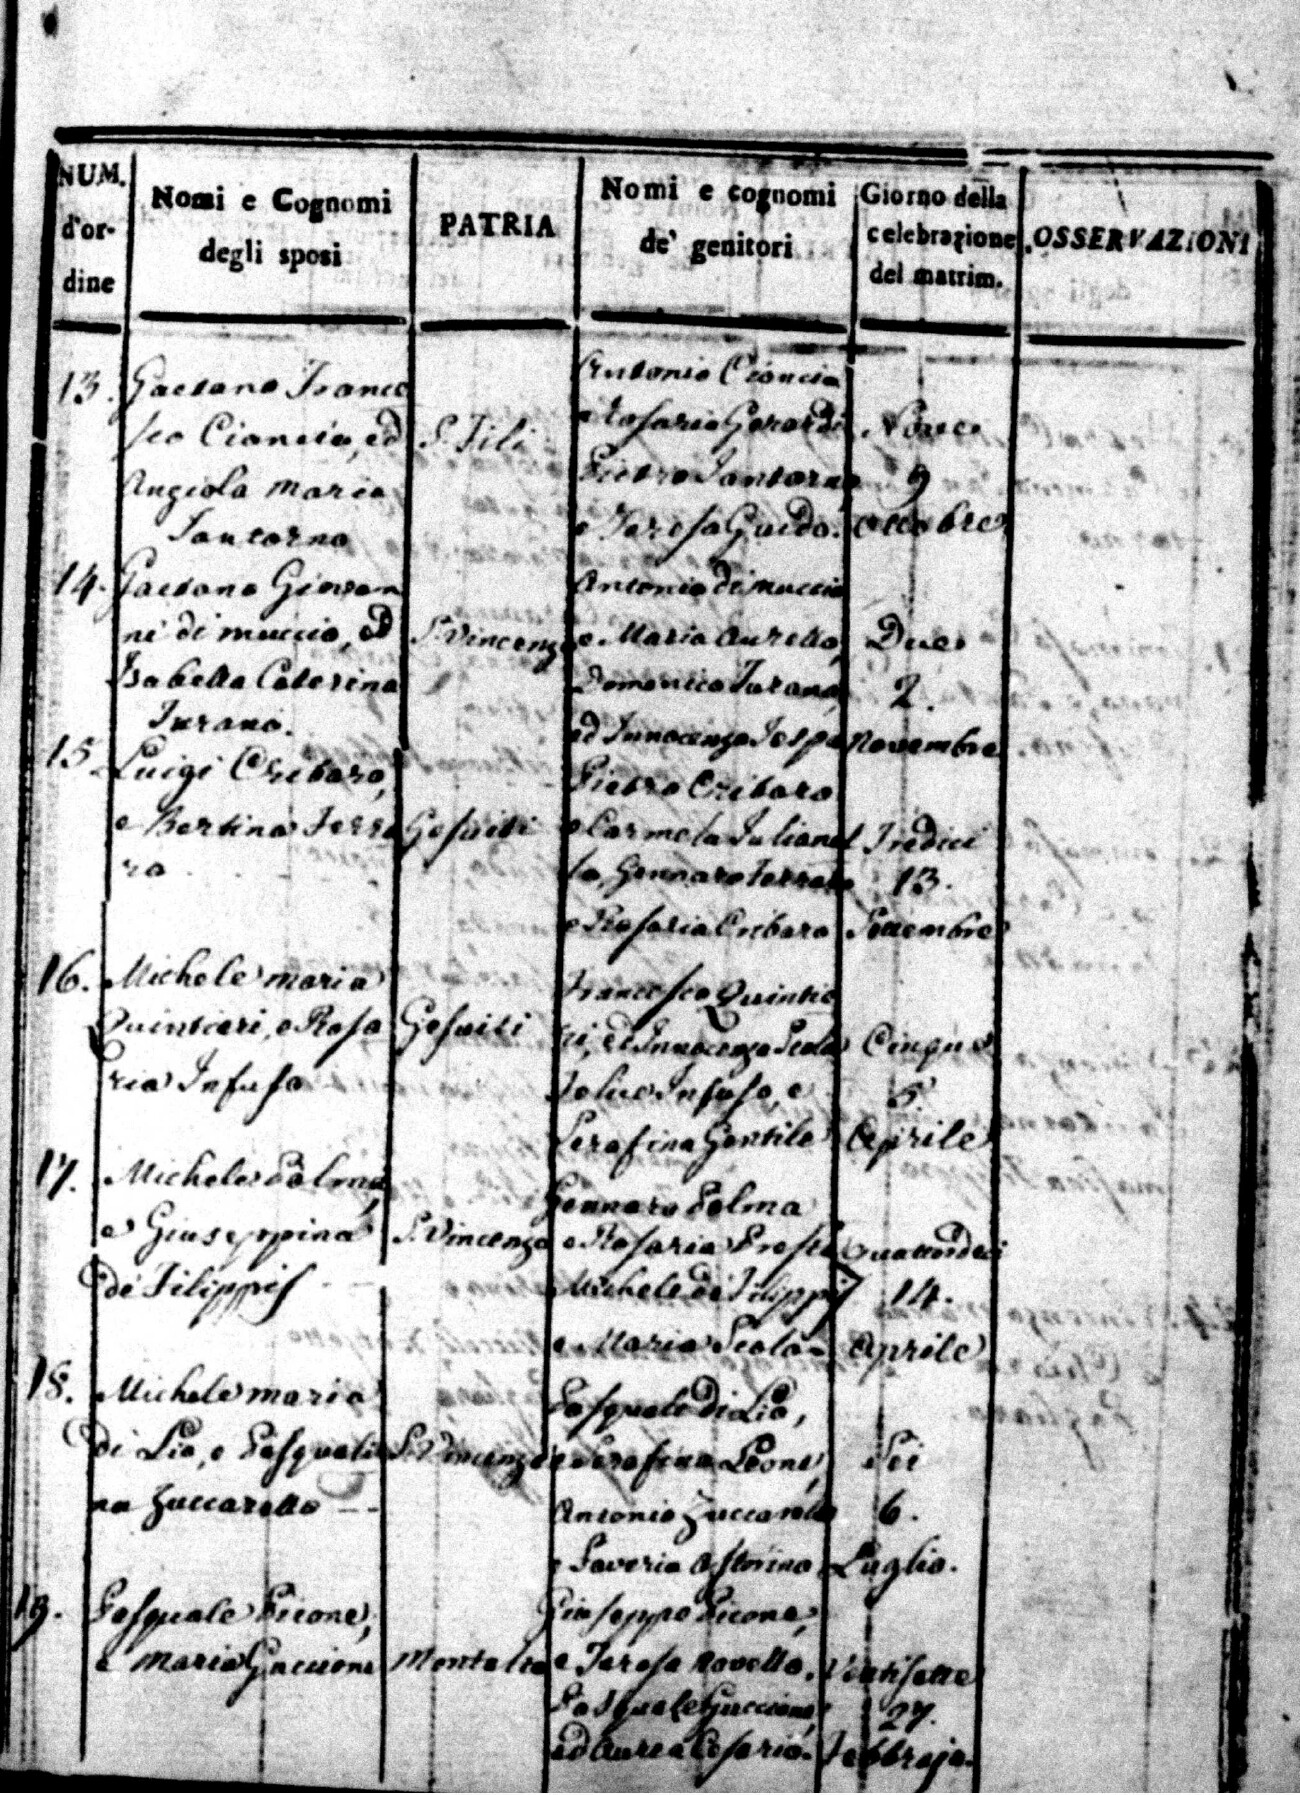 NUM.
d'or-
dine
Nomi e Cognomi
degli sposi
PATRIA
Nomi e cognomi
de' genitori
Giorno della
celebrazione
del matrim.
OSSERVAZIONI
13.
Gaetano France
sco Cioncia, ed
Angiola Maria
Santorno
S. Fili
Antonio Cioncia
e Rosaria Gerardi
Pietro Santorno
e Teresa Guido.
Nove
9
Ottobre
14.
Gaetano Giovan
ni di Muccio, ed
Isabella Caterina
Turano.
S. Vincenzo
Antonio di Muccio
e Maria Aurello,
Domenico Turano,
ed Innocenza
Due
2.
Novembre
15.
Luigi Cribaro,
e Bertina Ferra
ro
Gesuiti
Pietro Cribaro
e Carmela Julianel
la, Gennaro Ferraro
e Rosaria Cribaro
Tredici
13.
Settembre
16.
Michele Maria
Quintieri, e Rosa
ria Infuso
Gesuiti
Francesco Quintie
ri, ed Innocenza Scola
Infuso, e
Serafina Gentile
Cinque
5.
Aprile
17.
Michele Palma,
e Giuseppina
de Filippis
S. Vincenzo
Gennaro Palma
e Rosaria
Michele de Filippis
e Maria Scola
Quattordeci
14.
Aprile
18.
Michele Maria
di Lio, e Pasquali
na Zuccarello
S. Vincenzo
Pasquale di Lio,
e Serafina Leone,
Antonio Zuccarello
e Saveria Astorino
Sei
6.
Luglio.
19.
Pasquale Picone,
e Maria Guccione
Montalto
Giuseppe Picone,
e Teresa Novello,
Pasquale Guccione,
ed Aurea Cesario.
Ventisette
27.
Febbrajo.